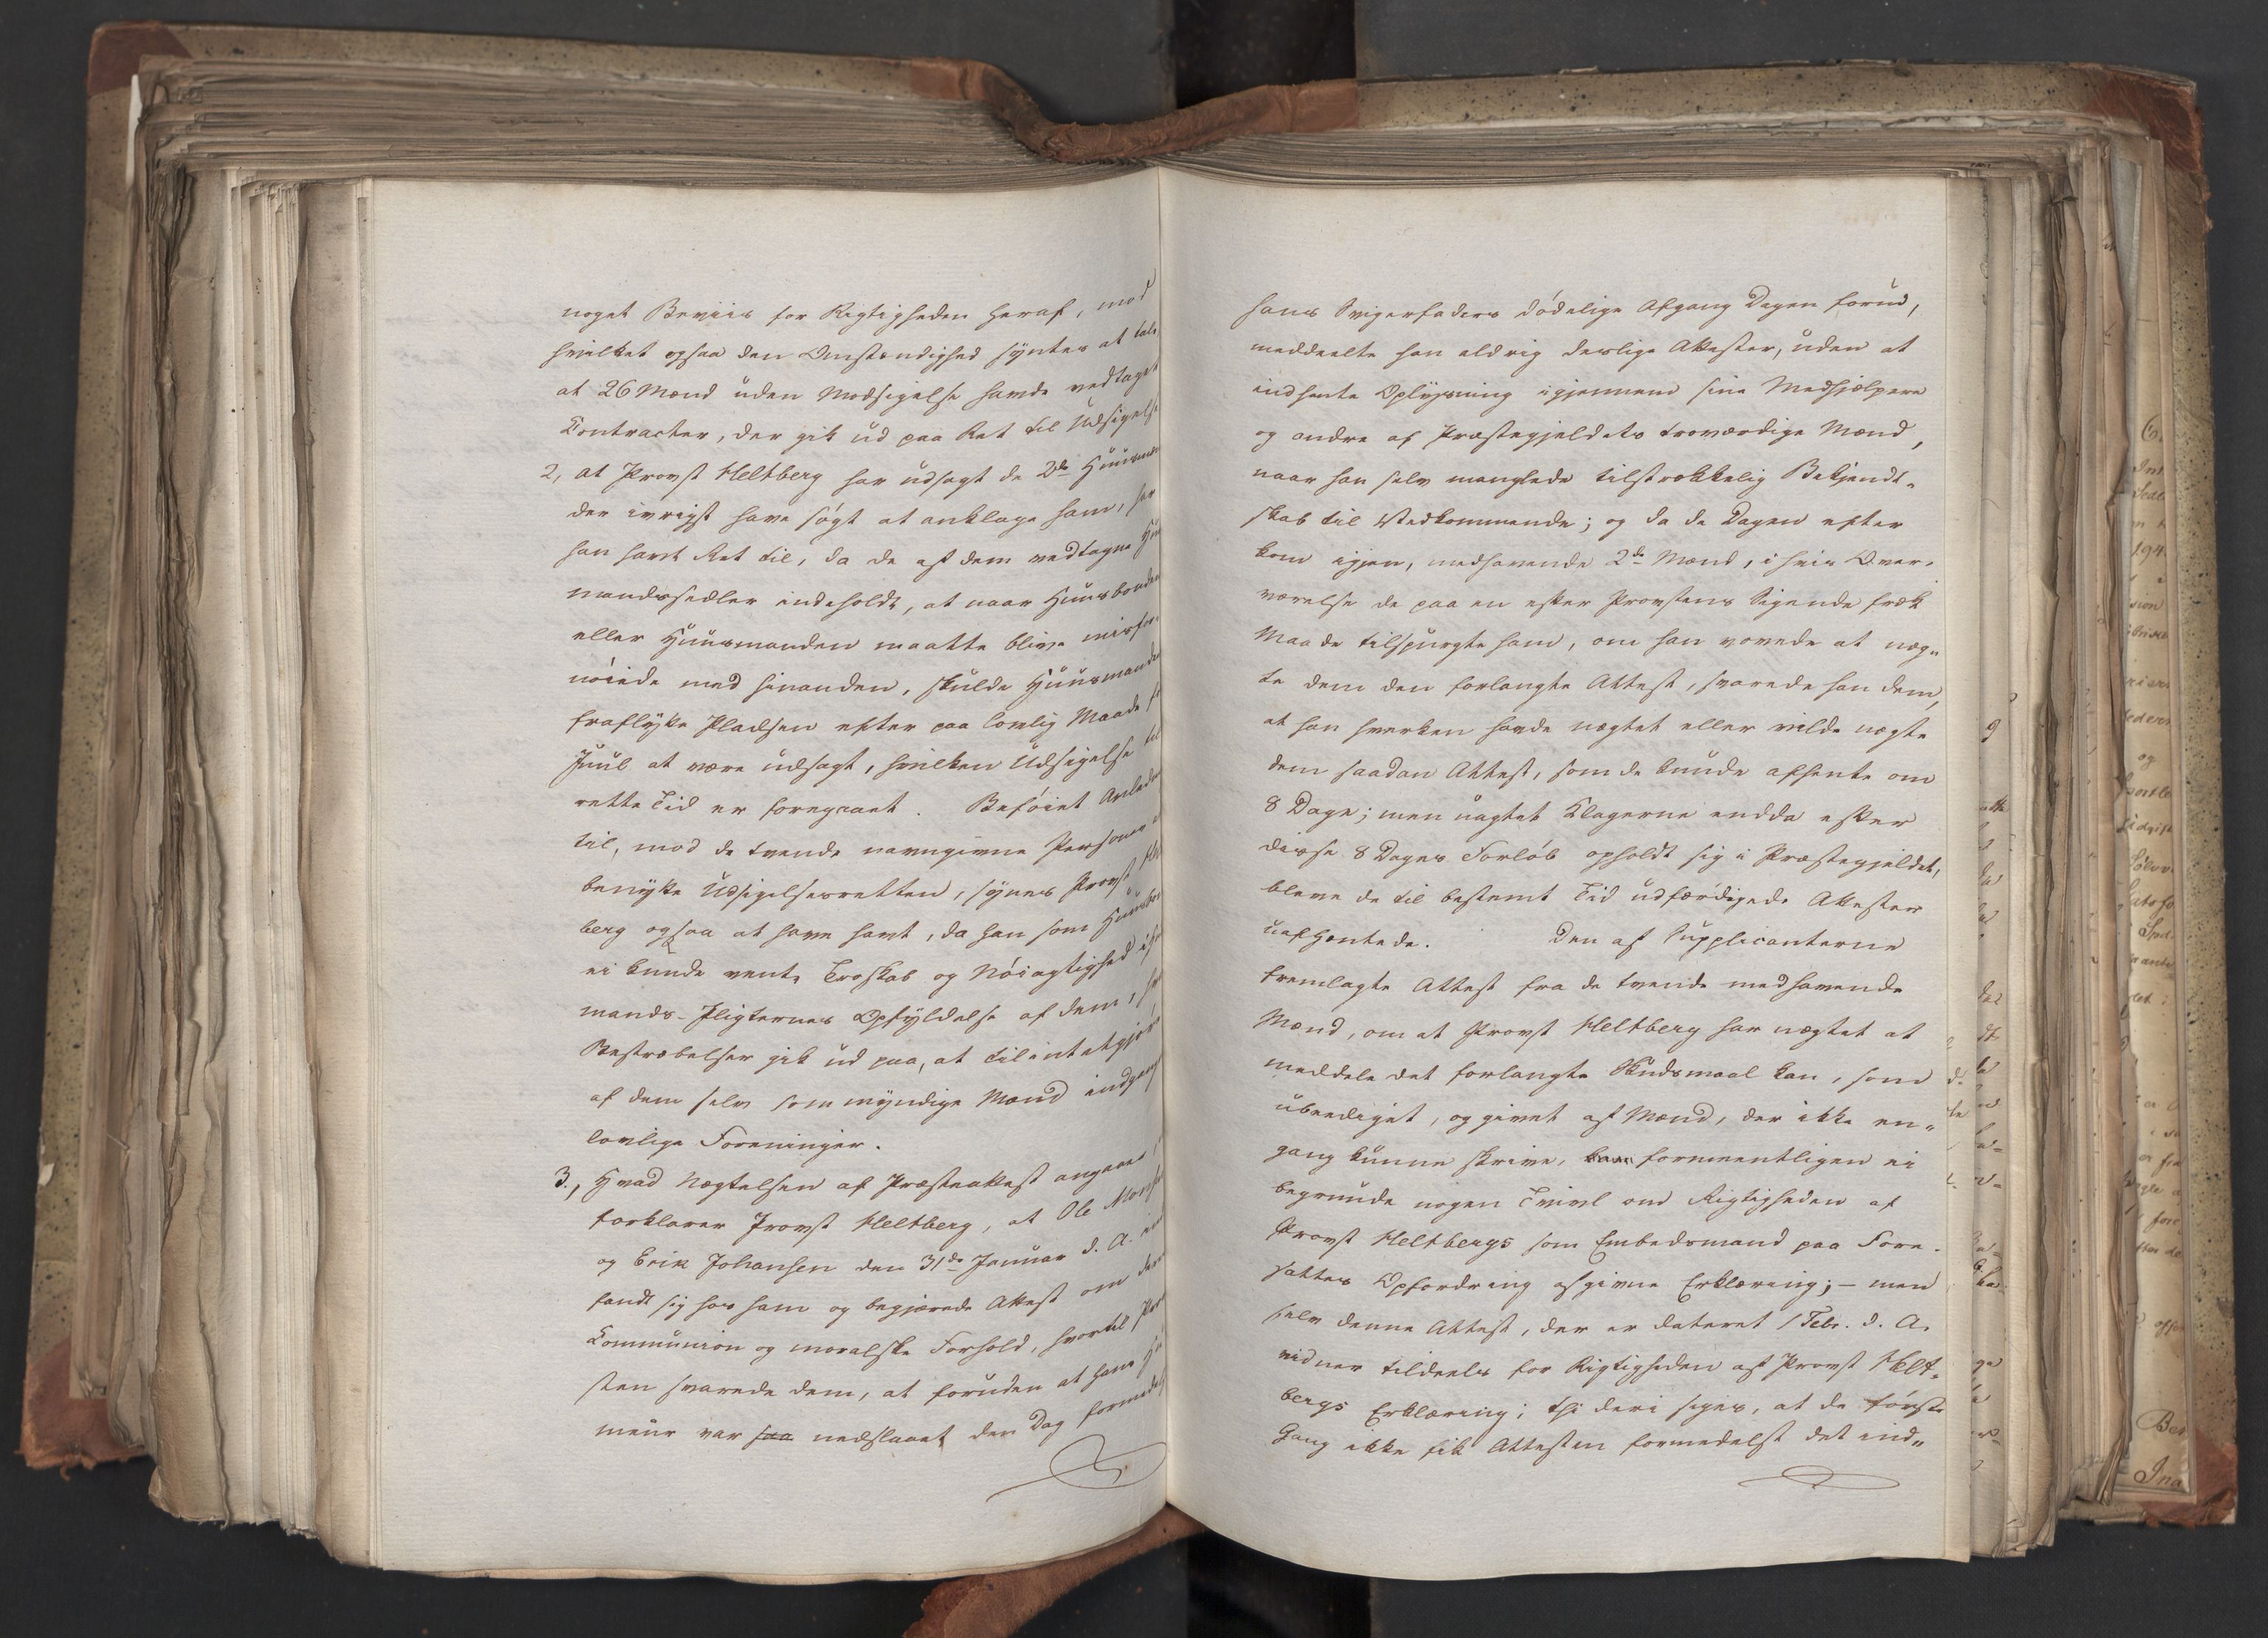 noget Beviis for Rigtigheden heraf, mod
hvilket ogsaa den Omstændighed syntes at tale,
at 26 Mænd uden Modsigelse havde vedtaget
Contracter, der gik ud paa Ret til Udsigelse
2, at Provst Heltberg har udsagt de 2de Huusmænd
der ivrigst have søgt at anklage ham, har
han havt Ret til, da de af dem vedtagne
mandssedler indeholdt, at naar Huusbonden
eller Huusmanden maatte blive misfor-
nøiede med hinanden, skulde Huusmanden
fraflytte Pladsen efter paa lovlig Maade f
Juul at være udsagt, hvilken Udsigelse til
rette Tid er foregaaet. Beføiet Anledn
til, mod de tvende navngivne Personer
benytte Udsigelsesretten, synes Provst Helt
berg ogsaa at have havt, da han som Huusbon
ei kunde vente Troskab og Nøiagtighed i
mands-Pligternes Opfyldelse af dem,
Bestræbelser gik ud paa, at tilintetgjøre
af dem selv som myndige Mænd indgangne
lovlige Foreninger.
3., Hvad Nægtelsen af Præsteattest angaaer,
forklarer Provst Heltberg, at Ole
og Erik Johansen den 31de Januar d. A. ind
fandt sig hos ham og begjærede Attest om deres
Communion og moralske Forhold, hvortil Prov
sten svarede dem, at foruden at hans Hu
meur var saa nedslaaet den Dag formedelst
hans Svigerfaders dødelige Afgang Dagen forud,
meddeelte han aldrig deslige Attester, uden at
indhente Oplysning igjennem sine Medhjælpere
og andre af Præstegjeldets troværdige Mænd,
naar han selv manglede tilstrækkelig Bekjendt-
skab til Vedkommende; og da de Dagen efter
kom igjen, medhavende 2de Mænd, i hvis Over-
værelse de paa en efter Provstens Sigende fræk
Maade tilspurgte ham, om han vovede at næg-
te dem den forlangte Attest, svarede han dem,
at han hverken havde nægtet eller vilde nægte
dem saadan Attest, som de kunde afhente om
8 Dage; men uagtet Klagerne endda efter
disse 8 Dages Forløb opholdt sig i Præstegjeldet,
bleve de til bestemt Tid udfærdigede Attester
uafhentede. Den af Supplicanterne
fremlagte Attest fra de tvende medhavende
Mænd, om at Provst Heltberg har nægtet at
meddele det forlangte Skudsmaal kan, som
ubeediget, og givet af Mænd, der ikke en-
gang kunne skrive, kan formeentligen ei
begrunde nogen Tvivl om Rigtigheden af
Provst Heltbergs som Embedsmand paa Fore-
sattes Opfordring afgivne Erklæring; – men
selv denne Attest, der er dateret 1 Febr. d. A.
vidner tildeels for Rigtigheden af Provst Helt-
bergs Erklæring; thi deri siges, at de første
Gang ikke fik Attesten formedelst det ind-